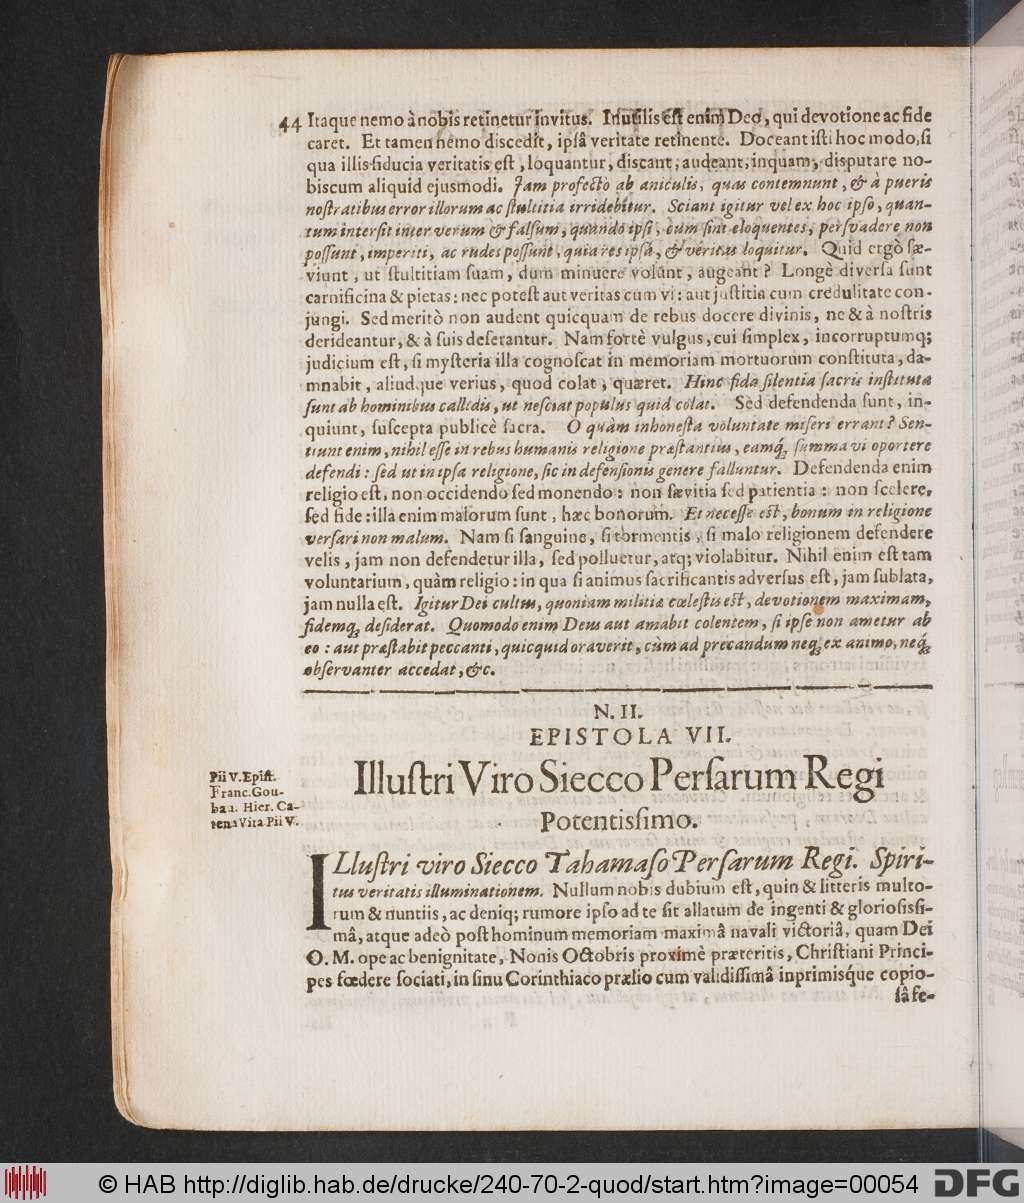 44 Itaque nemo à nobis retinetur invitus. Inutilis est enim Deo, qui devotione ac fide
caret. Et tamen nemo discedit, ipsâ veritate retinente. Doceant isti hoc modo, si
qua illis fiducia veritatis est, loquantur, discant, audeant, inquam, disputare no-
biscum aliquid ejusmodi. Jam profectò ab aniculis, quas contemnunt, & à pueris
nostratibus error illorum ac stultitia irridebitur. Sciant igitur vel ex hoc ipso, quan-
tum intersit inter verum & falsum, quando ipsi, cùm sint eloquentes, persvadere non
possunt, imperiti, ac rudes possunt, quia res ipsa, & veritas loquitur. Quid ergò sæ-
viunt, ut stultitiam suam, dum minuere volunt, augeant? Longè diversa sunt
carnificina & pietas: nec potest aut veritas cum vi: aut justitia cum credulitate con-
jungi. Sed meritò non audent quicquam de rebus docere divinis, ne & à nostris
derideantur, & à suis deserantur. Nam fortè vulgus, cui simplex, incorruptumq;
judicium est, si mysteria illa cognoscat in memoriam mortuorum constituta, da-
mnabit, aliudque verius, quod colat, quæret. Hinc fida silentia sacris instituta
sunt ab hominibus callidis, ut nesciat populus quid colat. Sed defendenda sunt, in-
quiunt, suscepta publicè sacra. O quàm inhonesta voluntate miseri errant? Sen-
tiunt enim, nihil esse in rebus humanis religione præstantius, eamq́; summa vi oportere
defendi: sed ut in ipsa religione, sic in defensionis genere falluntur. Defendenda enim
religio est, non occidendo sed monendo: non sævitia sed patientia: non scelere,
sed fide: illa enim malorum sunt, hæc bonorum. Et necesse est, bonum in religione
versari non malum. Nam si sanguine, si tormentis, si malo religionem defendere
velis, jam non defendetur illa, sed polluetur, atq; violabitur. Nihil enim est tam
voluntarium, quàm religio: in qua si animus sacrificantis adversus est, jam sublata,
jam nulla est. Igitur Dei cultus, quoniam militia cœlestis est, devotionem maximam,
fidemq; desiderat. Quomodo enim Deus aut amabit colentem, si ipse non ametur ab
eo: aut præstabit peccanti, quicquid oraverit, cùm ad precandum neq; ex animo, neq́;
observanter accedat, &c.
N. II.
EPISTOLA VII.
Illustri Viro Siecco Persarum Regi
Potentissimo.
Pii V. Epist.
Franc. Gou-
bau. Hier. Ca-
tena Vita Pii V.
ILlustri viro Siecco Tahamaso Persarum Regi. Spiri-
tus veritatis illuminationem. Nullum nobis dubium est, quin & litteris multo-
rum & nuntiis, ac deniq; rumore ipso ad te sit allatum de ingenti & gloriosissi-
mâ, atque adeò post hominum memoriam maximâ navali victoriâ, quam Dei
O. M. ope ac benignitate, Nonis Octobris proximè præteritis, Christiani Princi-
pes fœdere sociati, in sinu Corinthiaco prælio cum validissimâ inprimisq́ue copio-
sâ fe-
© HAB http://diglib.hab.de/drucke/240-70-2-quod/start.htm?image=00054
DFG